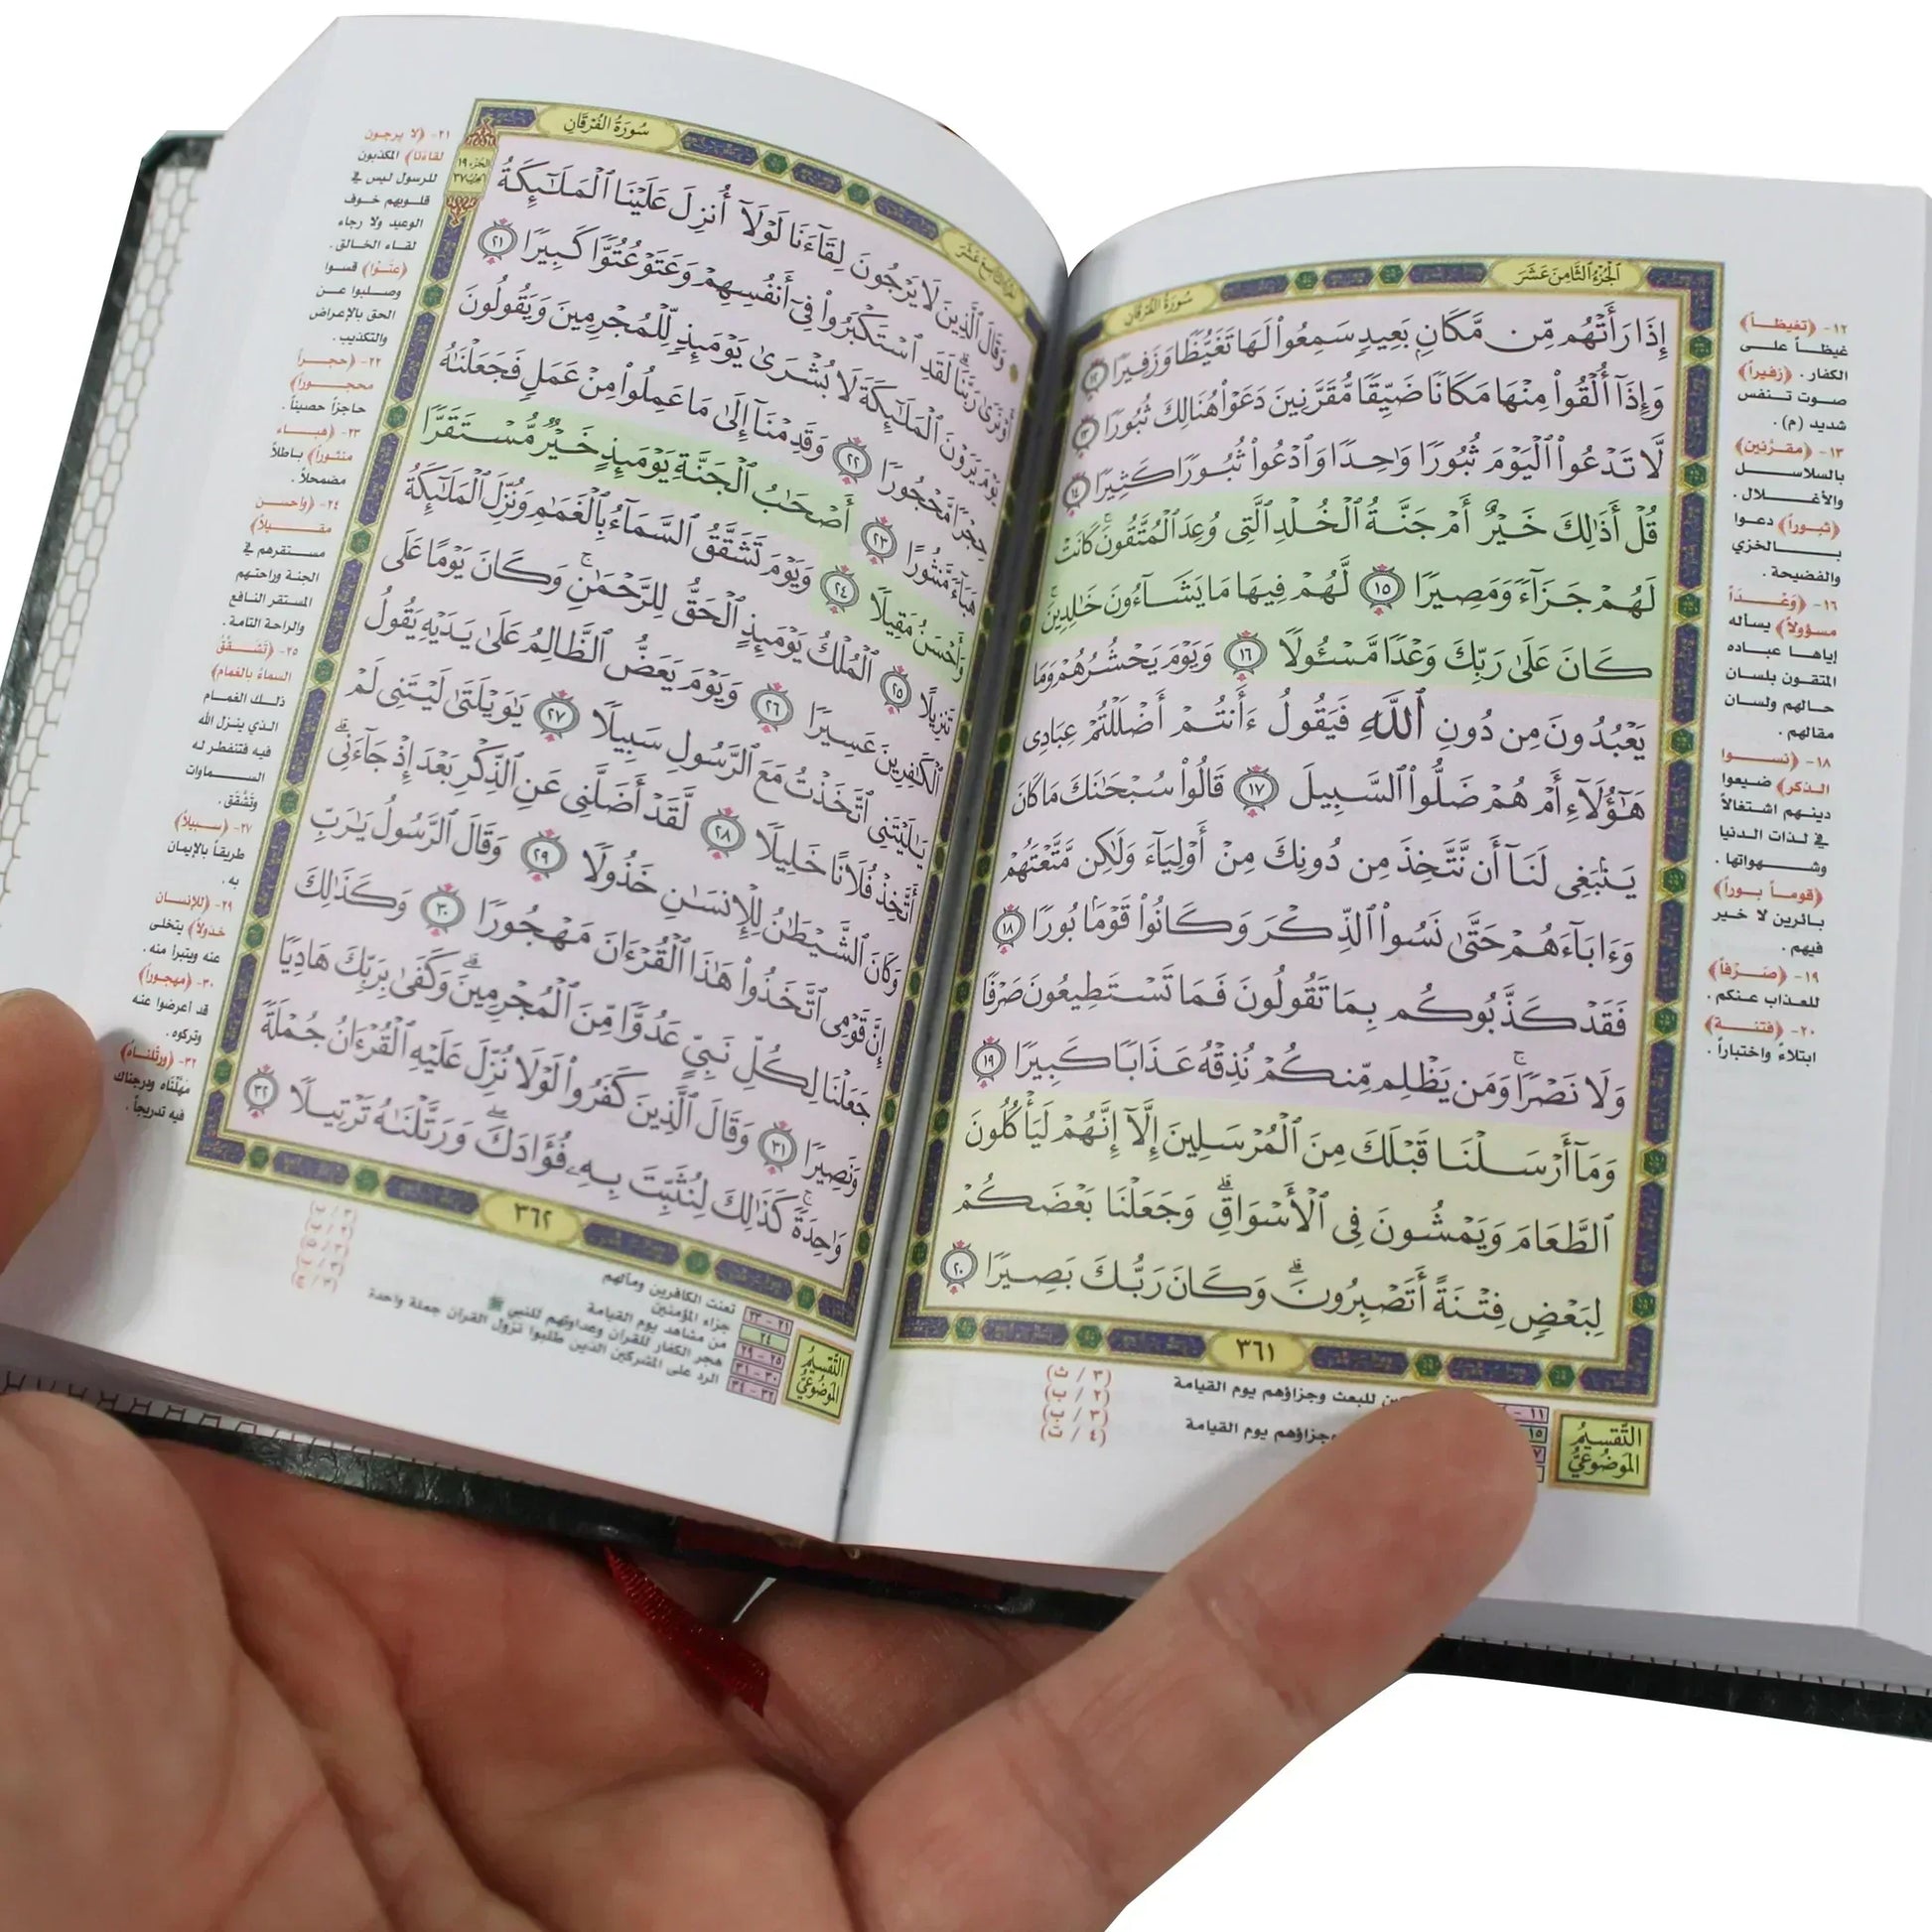 الجزء الثامن عشر
سورة الفرقان
إِذَا رَأَتْهُم مِّن مَّكَانٍ بَعِيدٍ سَمِعُوا۟ لَهَا تَغَيُّظًا وَزَفِيرًا ١٢
وَإِذَآ أُلْقُوا۟ مِنْهَا مَكَانًا ضَيِّقًا مُّقَرَّنِينَ دَعَوْا۟ هُنَالِكَ ثُبُورًا ١٣
لَّا تَدْعُوا۟ ٱلْيَوْمَ ثُبُورًا وَٰحِدًا وَٱدْعُوا۟ ثُبُورًا كَثِيرًا ١٤
قُلْ أَذَٰلِكَ خَيْرٌ أَمْ جَنَّةُ ٱلْخُلْدِ ٱلَّتِى وُعِدَ ٱلْمُتَّقُونَ ۚ كَانَتْ
لَهُمْ جَزَآءً وَمَصِيرًا ١٥ لَّهُمْ فِيهَا مَا يَشَآءُونَ خَٰلِدِينَ ۚ
كَانَ عَلَىٰ رَبِّكَ وَعْدًا مَّسْـُٔولًا ١٦ وَيَوْمَ يَحْشُرُهُمْ وَمَا
يَعْبُدُونَ مِن دُونِ ٱللَّهِ فَيَقُولُ ءَأَنتُمْ أَضْلَلْتُمْ عِبَادِى
هَٰٓؤُلَآءِ أَمْ هُمْ ضَلُّوا۟ ٱلسَّبِيلَ ١٧ قَالُوا۟ سُبْحَٰنَكَ مَا كَانَ
يَنۢبَغِى لَنَآ أَن نَّتَّخِذَ مِن دُونِكَ مِنْ أَوْلِيَآءَ وَلَٰكِن مَّتَّعْتَهُمْ
وَءَابَآءَهُمْ حَتَّىٰ نَسُوا۟ ٱلذِّكْرَ وَكَانُوا۟ قَوْمًۢا بُورًا ١٨
فَقَدْ كَذَّبُوكُم بِمَا تَقُولُونَ فَمَا تَسْتَطِيعُونَ صَرْفًا
وَلَا نَصْرًا ۚ وَمَن يَظْلِم مِّنكُمْ نُذِقْهُ عَذَابًا كَبِيرًا ١٩
وَمَآ أَرْسَلْنَا قَبْلَكَ مِنَ ٱلْمُرْسَلِينَ إِلَّآ إِنَّهُمْ لَيَأْكُلُونَ
ٱلطَّعَامَ وَيَمْشُونَ فِى ٱلْأَسْوَاقِ ۗ وَجَعَلْنَا بَعْضَكُمْ
لِبَعْضٍ فِتْنَةً أَتَصْبِرُونَ ۗ وَكَانَ رَبُّكَ بَصِيرًا ٢٠
٣٦١
١٢- ﴿تغيظاً﴾
غيظاً على
الكفار . ﴿زفيراً﴾
صوت تنفس
شديد (م) .
١٣- ﴿مقرنين﴾
بالسلاسل
والأغلال .
﴿ثبوراً﴾ دعوا
بالخزي
والفضيحة .
١٦- ﴿وَعْداً
مسؤولاً﴾ يسأله
إياها عباده
المتقون بلسان
حالهم ولسان
مقالهم .
١٨- ﴿نسوا
الذكر﴾ ضيعوا
دينهم اشتغالاً
في لذات الدنيا
وشهواتها .
﴿قوماً بوراً﴾
بائرين لا خير
فيهم .
١٩- ﴿صَرْفاً﴾
للعذاب عنكم .
٢٠- ﴿فتنة﴾
ابتلاءً واختباراً .
التقسيم
الموضوعي
١١ -
للبعث وجزاؤهم يوم القيامة
(٣ / ث)
١٥
(٢ / ب)
(٣ / ب)
وجزاؤهم يوم القيامة
(٤ / ث)
سورة الفرقان
الجزء ١٩
الحزب ٣٧
وَقَالَ ٱلَّذِينَ لَا يَرْجُونَ لِقَآءَنَا لَوْلَآ أُنزِلَ عَلَيْنَا ٱلْمَلَٰٓئِكَةُ
أَوْ نَرَىٰ رَبَّنَا ۗ لَقَدِ ٱسْتَكْبَرُوا۟ فِىٓ أَنفُسِهِمْ وَعَتَوْ عُتُوًّا كَبِيرًا ٢١
يَوْمَ يَرَوْنَ ٱلْمَلَٰٓئِكَةَ لَا بُشْرَىٰ يَوْمَئِذٍ لِّلْمُجْرِمِينَ وَيَقُولُونَ
حِجْرًا مَّحْجُورًا ٢٢ وَقَدِمْنَآ إِلَىٰ مَا عَمِلُوا۟ مِنْ عَمَلٍ فَجَعَلْنَٰهُ
هَبَآءً مَّنثُورًا ٢٣ أَصْحَٰبُ ٱلْجَنَّةِ يَوْمَئِذٍ خَيْرٌ مُّسْتَقَرًّا
وَأَحْسَنُ مَقِيلًا ٢٤ وَيَوْمَ تَشَقَّقُ ٱلسَّمَآءُ بِٱلْغَمَٰمِ وَنُزِّلَ ٱلْمَلَٰٓئِكَةُ
تَنزِيلًا ٢٥ ٱلْمُلْكُ يَوْمَئِذٍ ٱلْحَقُّ لِلرَّحْمَٰنِ ۚ وَكَانَ يَوْمًا عَلَى
ٱلْكَٰفِرِينَ عَسِيرًا ٢٦ وَيَوْمَ يَعَضُّ ٱلظَّالِمُ عَلَىٰ يَدَيْهِ يَقُولُ
يَٰلَيْتَنِى ٱتَّخَذْتُ مَعَ ٱلرَّسُولِ سَبِيلًا ٢٧ يَٰوَيْلَتَىٰ لَيْتَنِى لَمْ
أَتَّخِذْ فُلَانًا خَلِيلًا ٢٨ لَّقَدْ أَضَلَّنِى عَنِ ٱلذِّكْرِ بَعْدَ إِذْ جَآءَنِى ۗ
وَكَانَ ٱلشَّيْطَٰنُ لِلْإِنسَٰنِ خَذُولًا ٢٩ وَقَالَ ٱلرَّسُولُ يَٰرَبِّ
إِنَّ قَوْمِى ٱتَّخَذُوا۟ هَٰذَا ٱلْقُرْءَانَ مَهْجُورًا ٣٠ وَكَذَٰلِكَ
جَعَلْنَا لِكُلِّ نَبِىٍّ عَدُوًّا مِّنَ ٱلْمُجْرِمِينَ ۗ وَكَفَىٰ بِرَبِّكَ هَادِيًا
وَنَصِيرًا ٣١ وَقَالَ ٱلَّذِينَ كَفَرُوا۟ لَوْلَا نُزِّلَ عَلَيْهِ ٱلْقُرْءَانُ جُمْلَةً
وَٰحِدَةً ۚ كَذَٰلِكَ لِنُثَبِّتَ بِهِۦ فُؤَادَكَ ۖ وَرَتَّلْنَٰهُ تَرْتِيلًا ٣٢
٣٦٢
٢١- ﴿لا يرجون
لقاءنا﴾ المكذبون
للرسول ليس في
قلوبهم خوف
الوعيد ولا رجاء
لقاء الخالق .
﴿عتوا﴾ قسوا
وصلبوا عن
الحق بالإعراض
والتكذيب .
٢٢- ﴿حجراً
محجوراً﴾
حاجزاً حصيناً .
٢٣- ﴿هباء
منثوراً﴾ باطلاً
مضمحلاً .
٢٤- ﴿وأحسن
مقيلاً﴾
مستقرهم في
الجنة وراحتهم
المستقر النافع
والراحة التامة .
٢٥- ﴿تشقق
السماءُ بالغمام﴾
ذلك الغمام
الذي ينزل الله
فيه فتنفطر له
السماوات
وتشقق .
٢٧- ﴿سبيلاً﴾
طريقاً بالإيمان
به .
٢٩- ﴿للإنسان
خذولاً﴾ يتخلى
عنه ويتبرأ منه .
٣٠- ﴿مهجوراً﴾
قد أعرضوا عنه
وتركوه .
٣٢- ﴿ورتلناه﴾
مهلناه ودرجناك
فيه تدريجاً .
التقسيم
الموضوعي
٢١ - ٢٣ تعنت الكافرين ومآلهم
٢٤ جزاء المؤمنين
٢٥ - ٢٩ من مشاهد يوم القيامة
٣٠ - ٣١ هجر الكفار للقرآن وعداوتهم للنبي ﷺ
٣٢ - ٣٤ الرد على المشركين الذين طلبوا نزول القرآن جملة واحدة